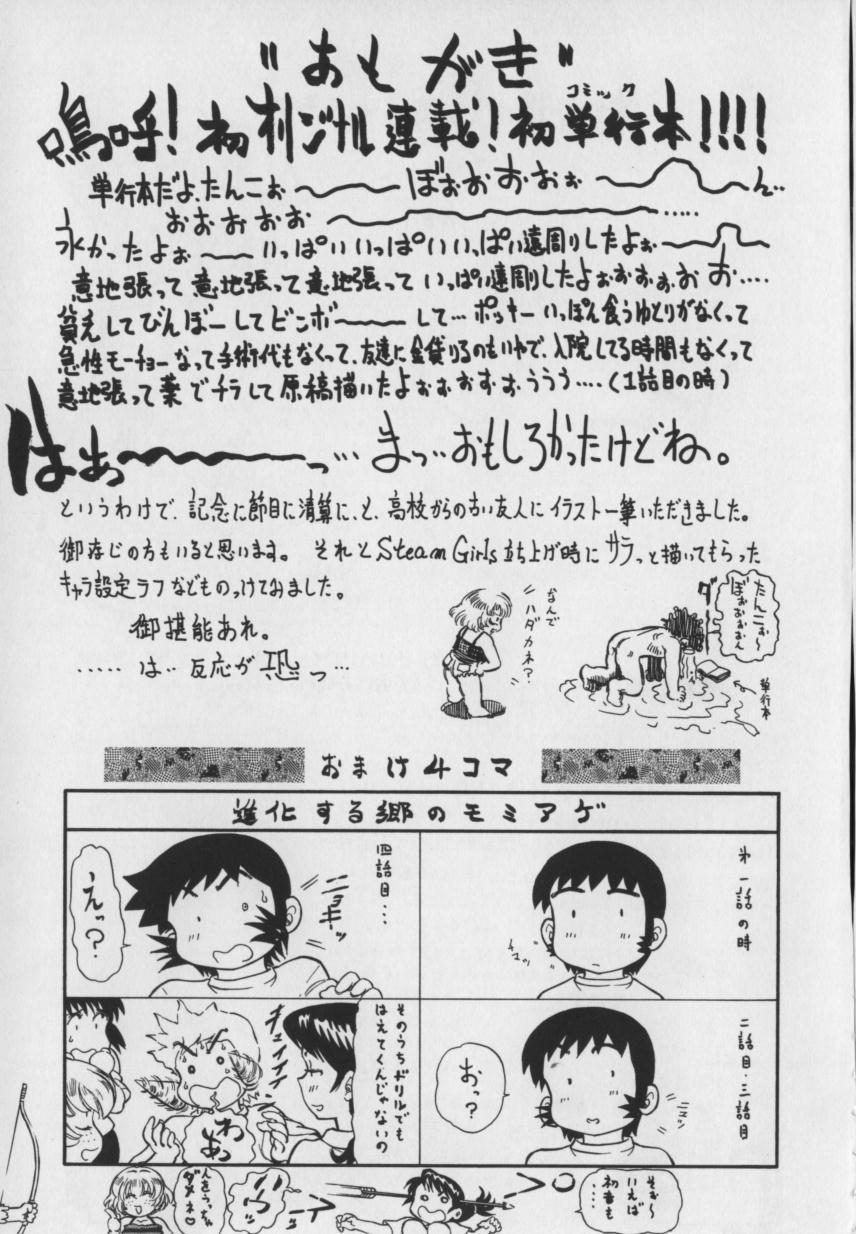 "あもがき"
嗚呼！初オリジナル連載！初単行本！！！！
コミック
単行本だよ、たんこぉ～～ぼぉぉおおぉぉ～～ん…
おおぉおお～～～～……
永かったよぉ～～いっぱいいっぱいいっぱい遠周りしたよぉ～～
意地張って意地張って意地張っていっぱい遠周りしたよぉぉぉぉぉお‥‥
貧乏してびんぼーしてビンボ～～して…ポッキーいっぽん食うゆとりがなくって
急性モーチョーなって手術代もなくって、友達に金貸りるのもいやで、入院してる時間もなくって
意地張って薬でチラして原稿描いたよぉぉぉぉぉううう‥‥（1話目の時）
はあっ～～～っ…まっ…おもしろかったけどね。
というわけで、記念に節目に清算に、と、高校からの古い友人にイラスト一筆いただきました。
御存じの方もいると思います。それとSteam Girls立ち上げ時にサラっと描いてもらった
キャラ設定ラフなどものっけてみました。
御堪能あれ。
‥‥‥は‥反応が恐っ…
なんで
ハダカネ？
たんこぉ～
ぼぉぉぉぉん
ダー
単行本
おまけ4コマ
進化する郷のモミアゲ
オ一話の時
チマッ
二話目・三話目
おっ？
ニュッ
四話目…
ニョキーッ
えっ？
そのうちドリルでも
はえてくんじゃないの
キュイイイイ
わあっ
そお～
いえば
初音も
…
人をうっちゃ
ダメネ♡